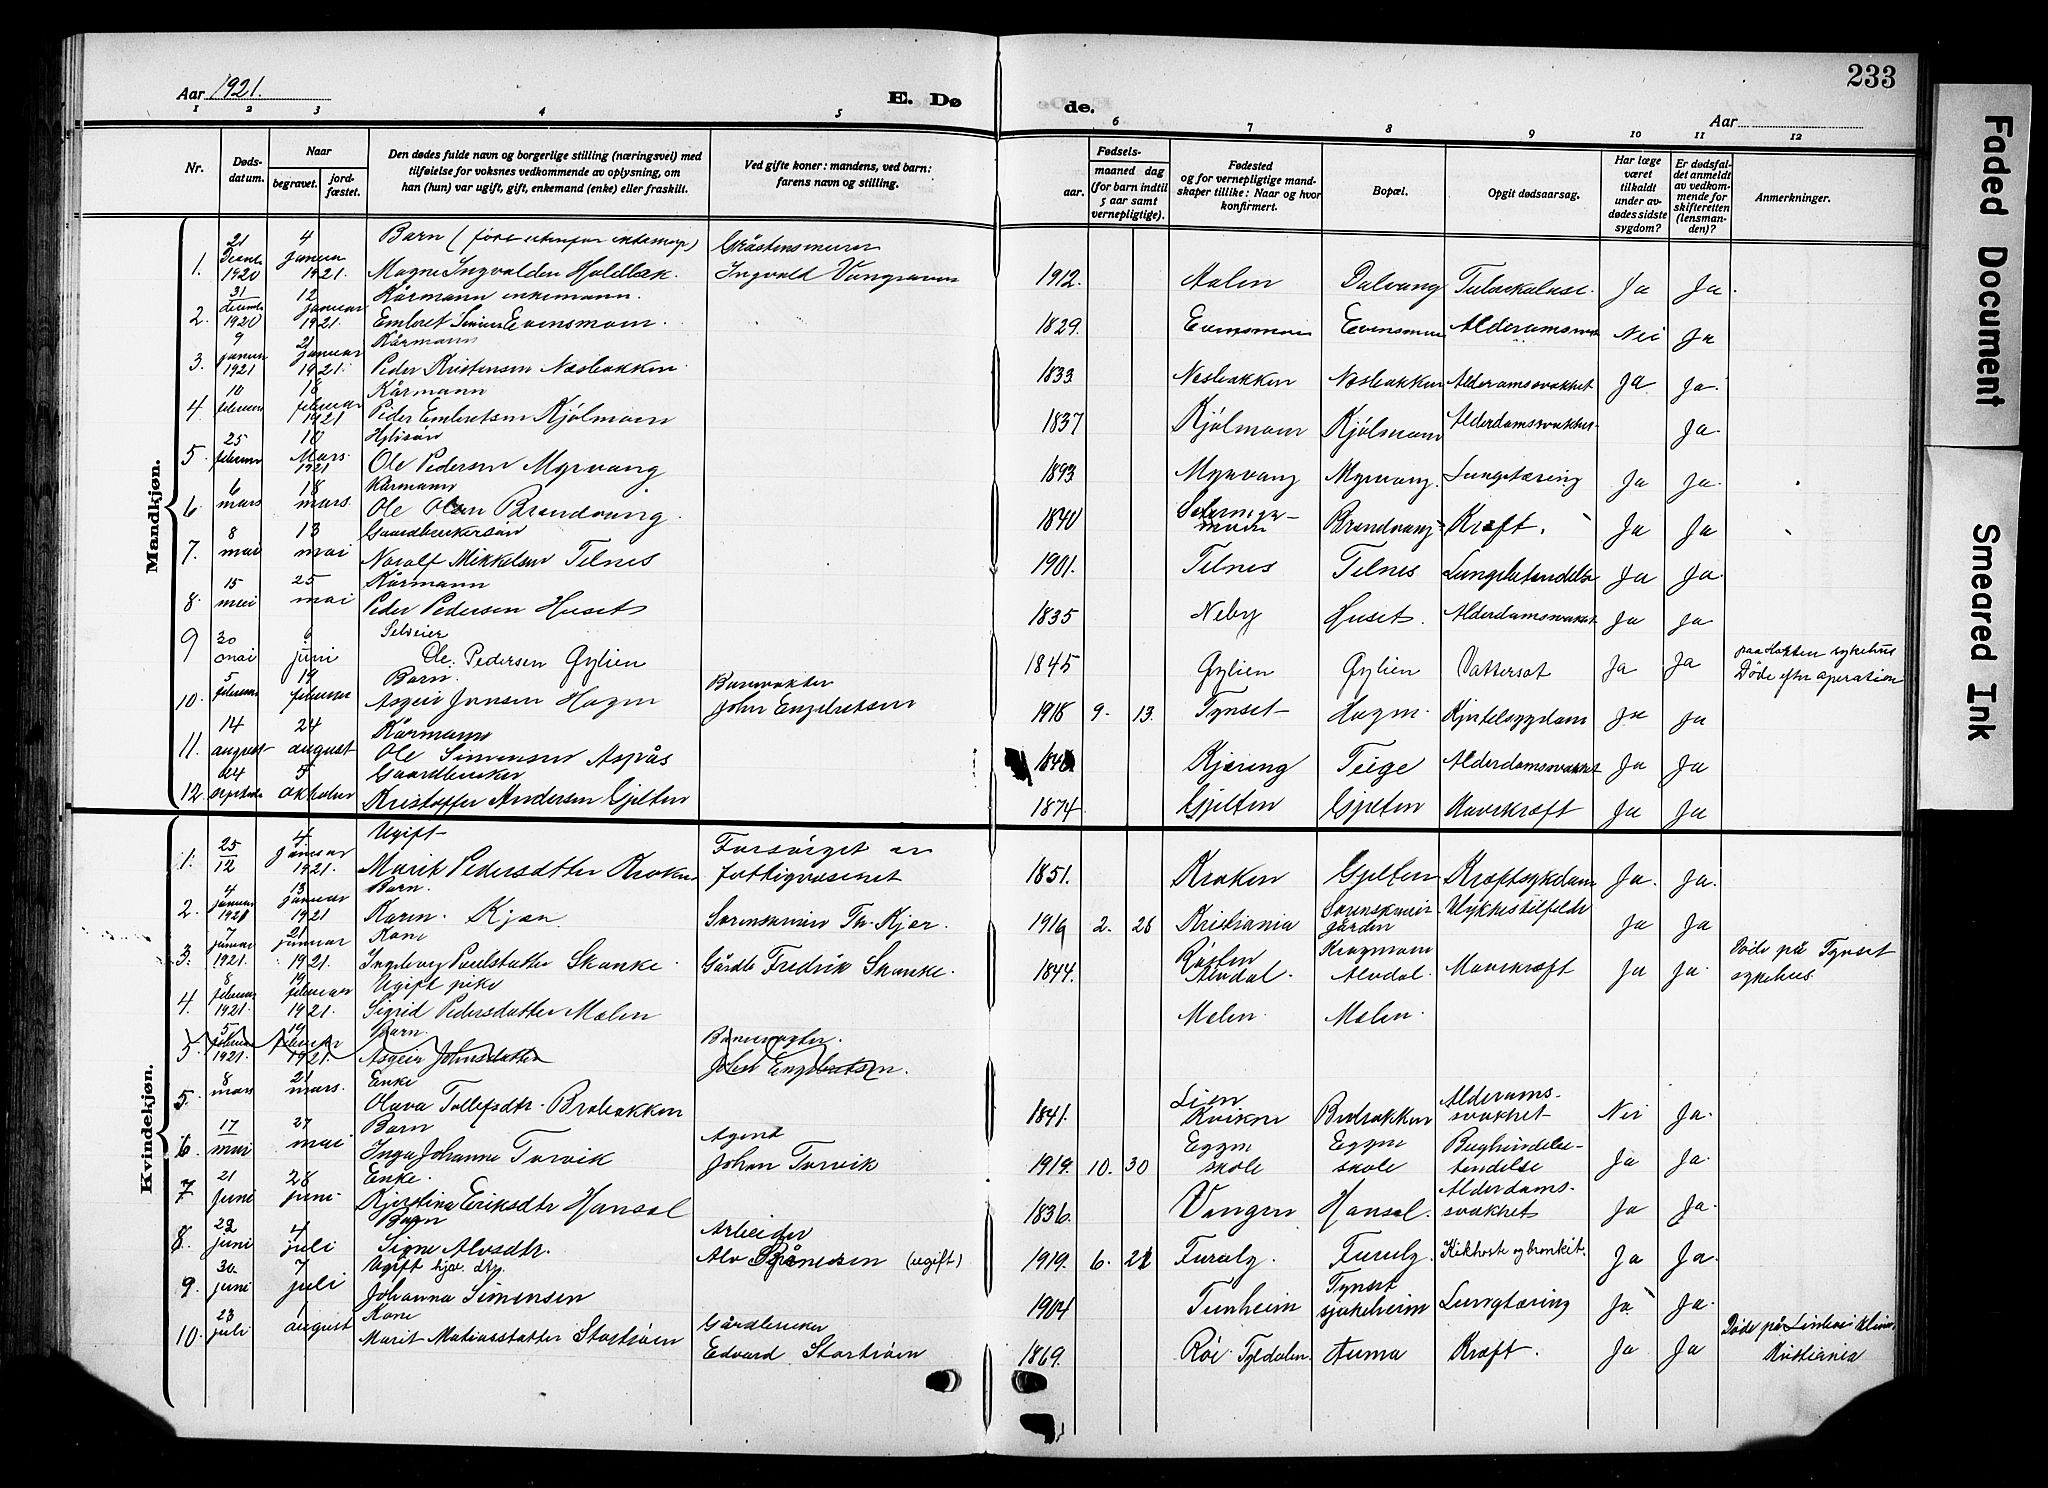 233
Aar 1921.
E. Dø
de.
Aar
1 2 3 4 5 6 7 8 9 10 11 12
Nr.
Døds-
datum.
Naar
begravet.
jord-
fæstet.
Den dødes fulde navn og borgerlige stilling (næringsvei) med
tilføielse for voksnes vedkommende av oplysning, om
han (hun) var ugift, gift, enkemand (enke) eller fraskilt.
Ved gifte koner: mandens, ved barn:
farens navn og stilling.
Fødsels-
aar.
maaned dag
(for barn indtil
5 aar samt
vernepligtige).
Fødested
og for vernepligtige mand-
skaper tillike: Naar og hvor
konfirmert.
Bopæl.
Opgit dødsaarsag.
Har læge
været
tilkaldt
under av-
dødes sidste
sygdom?
Er dødsfal-
det anmeldt
av vedkom-
mende for
skifteretten
(lensman-
den)?
Anmerkninger.
Mandkjøn.
1. 21 1920 4 januar 1921. Barn
Magne Ingvaldsen Ingvald Vangraven 1912. Dalvang Ja Ja
2. 31 decemb 1920 12 januar 1921. Kårmann enkemann.
Embret Evensmoen. 1829. Evensmoen Evensmoen Alderdomssvakhet Nei Ja
3. 9 januar 1921 21 januar 1921. Kårmann
Peder Kristensen Næsbakken. 1833. Næsbakken Næsbakken Alderdomssvakhet Ja Ja.
4. 10 februar 18 februar 1921 Kårmann
Peder Embretsen Kjølmoen 1837 Kjølmoen Kjølmoen Alderdomssvakhet Ja
5. 25 februar 10 Mars 1921
Ole Pedersen Myrvang 1893 Myrvang Myrvang. Lungetæring Ja Ja
6. 6 mars 18 mars. Kårmann
Ole Olsen Brandvang. 1840 Brandvang Kræft. Ja Ja
7. 8 mai 13 mai Gaardbrukersøn
Noralf Mikkelsen Telnes 1901. Telnes Telnes Lungebetendelse Ja Ja.
8. 15 mai 25 mai Kårmann
Peder Pedersen Huset 1835 Neby Huset. Alderdomssvakhet Ja Ja
9 30 mai 6 juni Selveier
Ole Pedersen Gylien 1845 Gylien Gylien Vattersot Ja Ja Døde efter operation
10. 5 februar 19 februar Barn. Banevokter
Asgeir Jonsen Hagen John Engebretsen 1918 9. 13. Tynset Hagen. Kjertelsygdom Ja Ja
11. 14 august 24 august Kårmann
Ole Simensen Aspås Kjæring Teige Alderdomssvakhet Ja Ja
12. 24 septebr 5 oktober Gaardbruker
Kristoffer Andersen Gjelten 1874 Gjelten Gjelten Mavekræft Ja Ja
Kvindekjøn.
1. 25/12 4 januar 1921. Ugift Forsørget av
Marit Pedersdatter Kroken fattigvæsenet 1851. Kroken Gjelten Kræftsykdom Ja. Ja.
2. 4 januar 1921 13 januar 1921 Barn.
Karin Kjær Sorenskriver Th. Kjær. 1919 2. 26 Kristiania Sorenskriver-
gården Ulykkestilfelde Ja Ja
3. 7 januar 1921. 21 januar 1921. Kone
Ingeborg Poulsdatter Skanke. Gårdbr Fredrik Skanke. 1844. Alvdal. Alvdal. Mavekræft Ja Ja. Døde på Tynset
sykehus
4. 8 februar 1921. 19 februar 1921. Ugift pike
Sigrid Pedersdatter Mælen Mælen. Mælen.
5. 5 februar 1921 19 februar 1921 Barn. Banevogter.
Asgeir Johnsdatter John Engebretsen.
5. 8 mars 21 mars. Enke
Olava Tollefsdtr. Brobakken 1841. Lien
Kvikne Brobakken Alderdoms-
svakhet Nei Ja.
6. 17 mai 27 mai Barn Agent
Inga Johanna Torvik Johan Torvik 1919. 10. 30 Eggen
skole Eggen
skole Bughindebe-
tendelse Ja Ja.
7 21 juni 28 juni Enke.
Kjerstina Eriksdtr Hansol 1836. Vangen Hansol. Alderdoms-
svakhet Ja Ja.
8. 22 juni 4 juli Barn Arbeider
Signe Alvsdtr. Alv (ugift) 1919. 6. Furulg. Furulg Kikhoste og bronkit. Ja Ja.
9. 30. juni 7 juli Ugift
Johanna Simensen 1904 Tunheim Tynset
sjukeheim Lungtæring Ja Ja.
10. 23 juli 1 august Kone Gårdbruker
Marit Matiasdatter Storrøen Edvard Storrøen 1869. Røe Tyldalen. Auma Kræft. Ja Ja Døde på
Kristiania
Faded Document
Smeared Ink